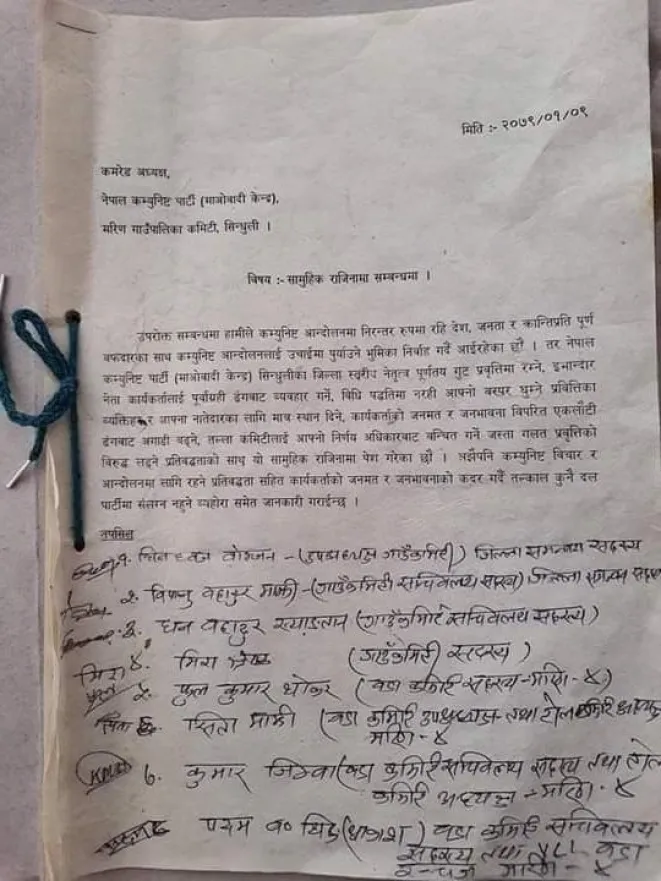 मिति :- २०७९/०१/०९
कमरेड अध्यक्ष,
नेपाल कम्युनिष्ट पार्टी (माओवादी केन्द्र),
मरिण गाउँपालिका कमिटी, सिन्धुली ।
विषय :- सामुहिक राजिनामा सम्बन्धमा ।
उपरोक्त सम्बन्धमा हामीले कम्युनिष्ट आन्दोलनमा निरन्तर रुपमा रहि देश, जनता र क्रान्तिप्रति पूर्ण
वफदारका साथ कम्युनिष्ट आन्दोलनलाई उचाईमा पुर्याउने भुमिका निर्वाह गर्दै आईरहेका छौं । तर नेपाल
कम्युनिष्ट पार्टी (माओवादी केन्द्र) सिन्धुलीका जिल्ला स्तरीय नेतृत्व पूर्णतय गुट प्रवृत्तिमा रम्ने, इमान्दार
नेता कार्यकर्तालाई पूर्वाग्रही ढंगबाट व्यवहार गर्ने, विधि पद्धतिमा नरही आफ्नो वरपर घुम्ने प्रवित्तिका
व्यक्तिहरु र आफ्ना नातेदारका लागि मात्र स्थान दिने, कार्यकर्ताको जनमत र जनभावना विपरित एकलौटी
ढंगबाट अगाडी बढ्ने, तल्ला कमिटीलाई आफ्नो निर्णय अधिकारबाट बन्चित गर्ने जस्ता गलत प्रवृत्तिको
विरुद्ध लड्ने प्रतिबद्धताको साथ यो सामुहिक राजिनामा पेश गरेका छौं । अझैपनि कम्युनिष्ट विचार र
आन्दोलनमा लागि रहने प्रतिबद्धता सहित कार्यकर्ताको जनमत र जनभावनाको कदर गर्दै तत्काल कुनै दल
पार्टीमा संलग्न नहुने व्यहोरा समेत जानकारी गराईन्छ ।
तपसिल
१. - (उपाध्यक्ष गाउँकमिटी) जिल्ला समन्वय सदस्य
२. विष्णु बहादुर माझी - (गाउँकमिटी सचिवालय सदस्य) जिल्ला
३. धन बहादुर (गाउँकमिटी सचिवालय सदस्य)
मिरा ४. मिरा (गाउँकमिटी सदस्य)
५. फुल कुमार थोकर (वडा कमिटी सदस्य - मरिण - ४)
६. सिता माझी (वडा कमिटी उपाध्यक्ष तथा टोल कमिटी
मरिण - ४
७. कुमार जिम्बा (वडा कमिटी सचिवालय सदस्य तथा टोल
कमिटी अध्यक्ष - मरिण - ४
पदम ब० (आकाश) वडा कमिटी सचिवालय
सदस्य तथा YCL वडा
मरिण - ४